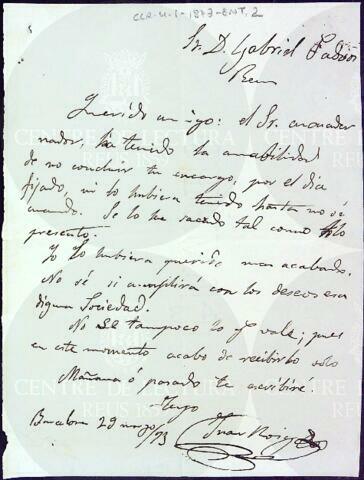 CLR-U-1-1873-ENT, 2
Sr. D. Gabriel
Reus
Querido amigo: el Sr. encuader
nador, ha tenido la amabilidad
de no concluir tu encargo, por el dia
fijado, ni lo hubiera tenido hasta no sé
cuando. Se lo he sacado tal como
presento.
Yo lo hubiera querido mas acabado.
No sé si cumplirá con los deseos esa
digna Sociedad.
Ni sé tampoco lo q vale; pues
en este momento acabo de recibirlo solo
Mañana ó pasado te escribiré.
Tuyo
Barcelona 29 marzo/73
Juan Roig
CENTRE DE LECTURA
REUS 1859